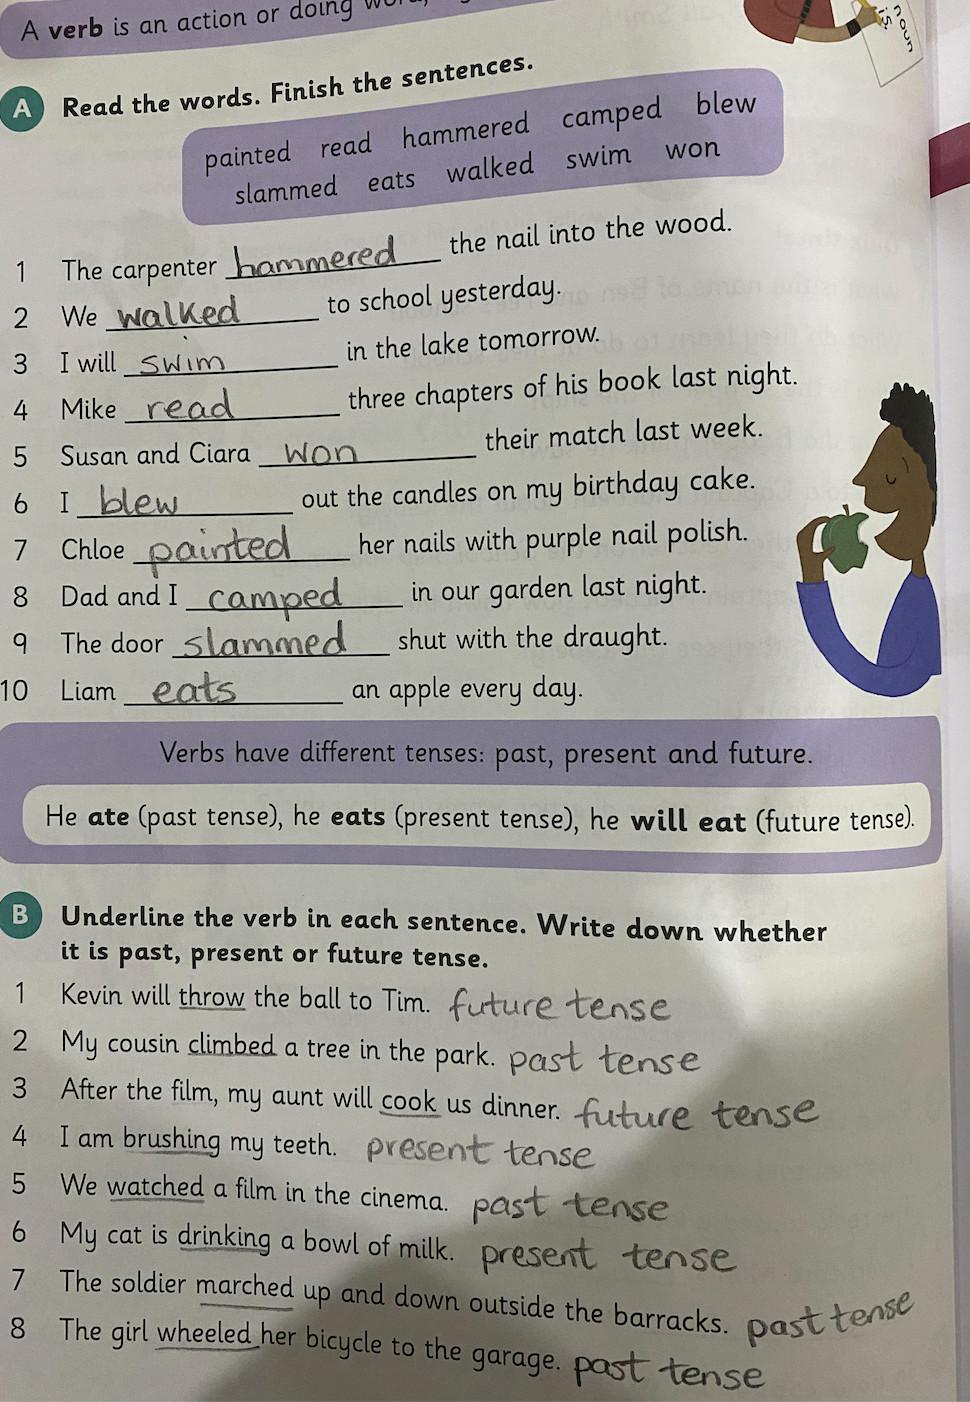 A verb is an action or doing
noun
is.
A Read the words. Finish the sentences.
painted read hammered camped blew
slammed eats walked swim won
1 The carpenter hammered the nail into the wood.
2 We walked to school yesterday.
3 I will swim in the lake tomorrow.
4 Mike read three chapters of his book last night.
5 Susan and Ciara won their match last week.
6 I blew out the candles on my birthday cake.
7 Chloe painted her nails with purple nail polish.
8 Dad and I camped in our garden last night.
9 The door slammed shut with the draught.
10 Liam eats an apple every day.
Verbs have different tenses: past, present and future.
He ate (past tense), he eats (present tense), he will eat (future tense).
B Underline the verb in each sentence. Write down whether
it is past, present or future tense.
1 Kevin will throw the ball to Tim. future tense
2 My cousin climbed a tree in the park. past tense
3 After the film, my aunt will cook us dinner. future tense
4 I am brushing my teeth. present tense
5 We watched a film in the cinema. past tense
6 My cat is drinking a bowl of milk. present tense
7 The soldier marched up and down outside the barracks. past tense
8 The girl wheeled her bicycle to the garage. past tense